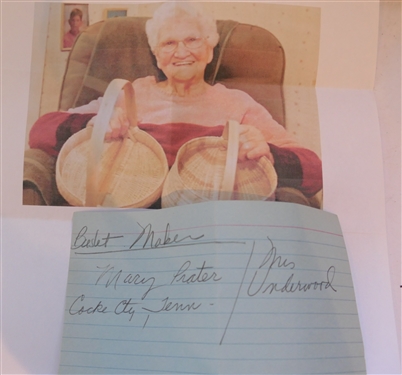 Basket Maker
Mary Prater
Cocke Cty, Tenn.
Mrs
Underwood